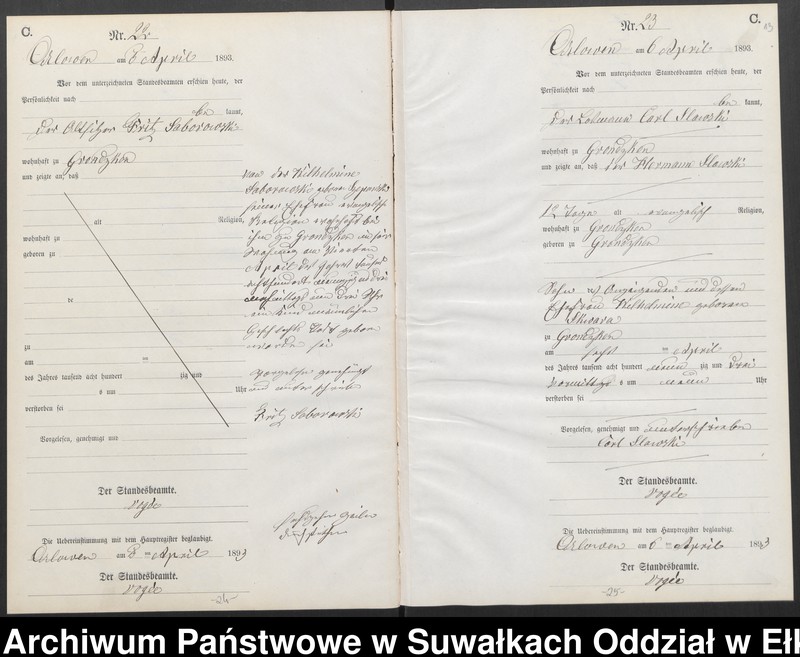 C.
Nr. 22
Orlowen am 8 April 1893.
Vor dem unterzeichneten Standesbeamten erschien heute, der
Persönlichkeit nach
be kannt,
der Altsitzer Fritz Saborowski
wohnhaft zu Grondzken
und zeigte an, daß
alt Religion,
wohnhaft zu
geboren zu
de
zu
am ten
des Jahres tausend acht hundert zig und
um Uhr
verstorben sei
Vorgelesen, genehmigt und
Der Standesbeamte.
Vogée
Die Uebereinstimmung mit dem Hauptregister beglaubigt.
Orlowen am 8 ten April 1893
Der Standesbeamte.
Vogée
-24-
von der Wilhelmine
Saborowski geborne
seiner Ehefrau evangelisch
Religion wohnhaft bei
ihm zu Grondzken in seiner
Wohnung am vierten
April des Jahres tausend
achthundert neunzig und drei
um drei Uhr
ein Kind männlichen
Geschlechts todt geboren
worden sei
Vorgelesen genehmigt
und unterschrieben
Fritz Saborowski
C.
Nr. 23
Orlowen am 6 April 1893.
Vor dem unterzeichneten Standesbeamten erschien heute, der
Persönlichkeit nach
be kannt,
der Losmann Carl Slawski
wohnhaft zu Grondzken
und zeigte an, daß der Hermann Slawski
12 Tage alt evangelisch Religion,
wohnhaft zu Grondzken
geboren zu Grondzken
Sohn des Anzeigenden und dessen
Ehefrau Wilhelmine geboren
Skwara
zu Grondzken
am sechs ten April
des Jahres tausend acht hundert neun zig und drei
Vormittags um neun Uhr
verstorben sei
Vorgelesen, genehmigt und unterschrieben
Carl Slawski
Der Standesbeamte.
Vogée
Die Uebereinstimmung mit dem Hauptregister beglaubigt.
Orlowen am 6 ten April 1893
Der Standesbeamte.
Vogée
-25-
Archiwum Państwowe w Suwałkach Oddział w Ełk